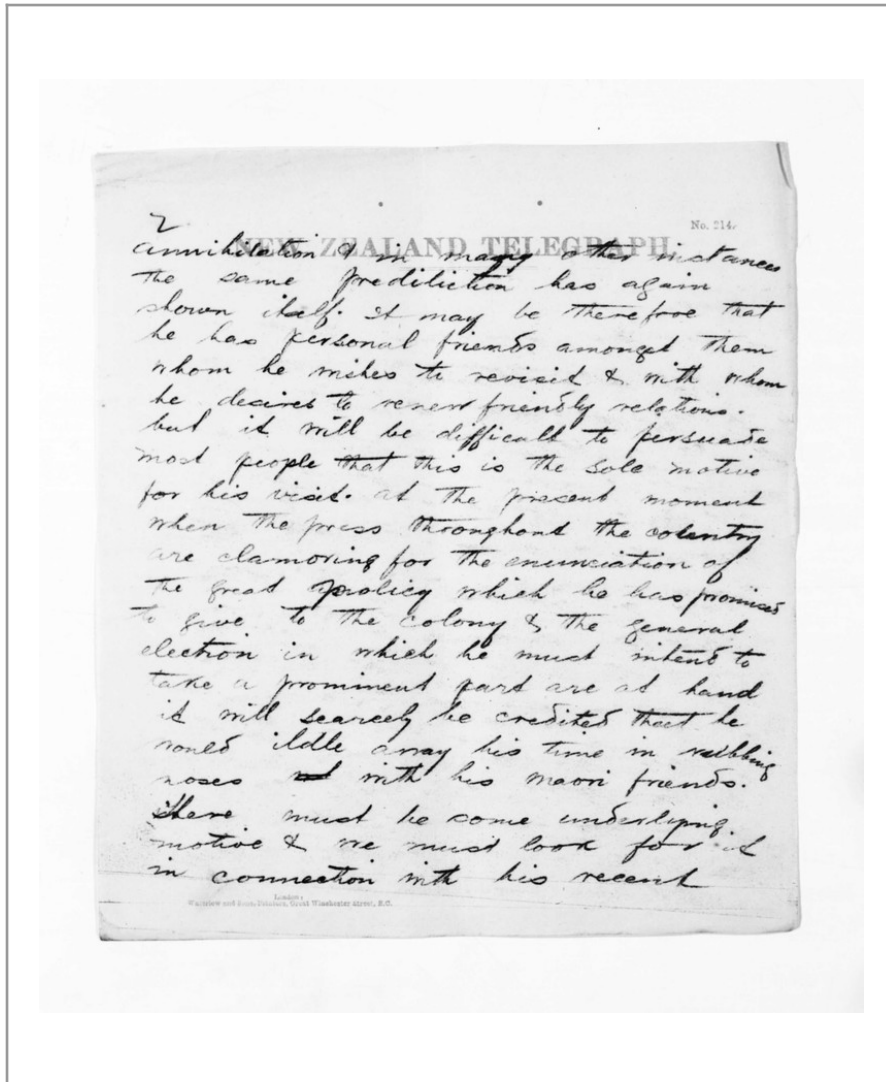 2
No. 214.
NEW ZEALAND TELEGRAPH.
annihilation & in many other instances
the same prediliction has again
shown itself. it may be therefore that
he has personal friends amongst them
whom he wishes to revisit & with whom
he desires to renew friendly relations.
but it will be difficult to persuade
most people that this is the sole motive
for his visit. at the present moment
when the press throughout the country
are clamoring for the enunciation of
the great policy which he has promised
to give to the colony & the general
election in which he must intend to
take a prominent part are at hand
it will scarcely be credited that he
would idle away his time in rubbing
noses with his maori friends.
there must be some underlying
motive & we must look for it
in connection with his recent
London:
Waterlow and Sons, Printers, Great Winchester Street, E.C.